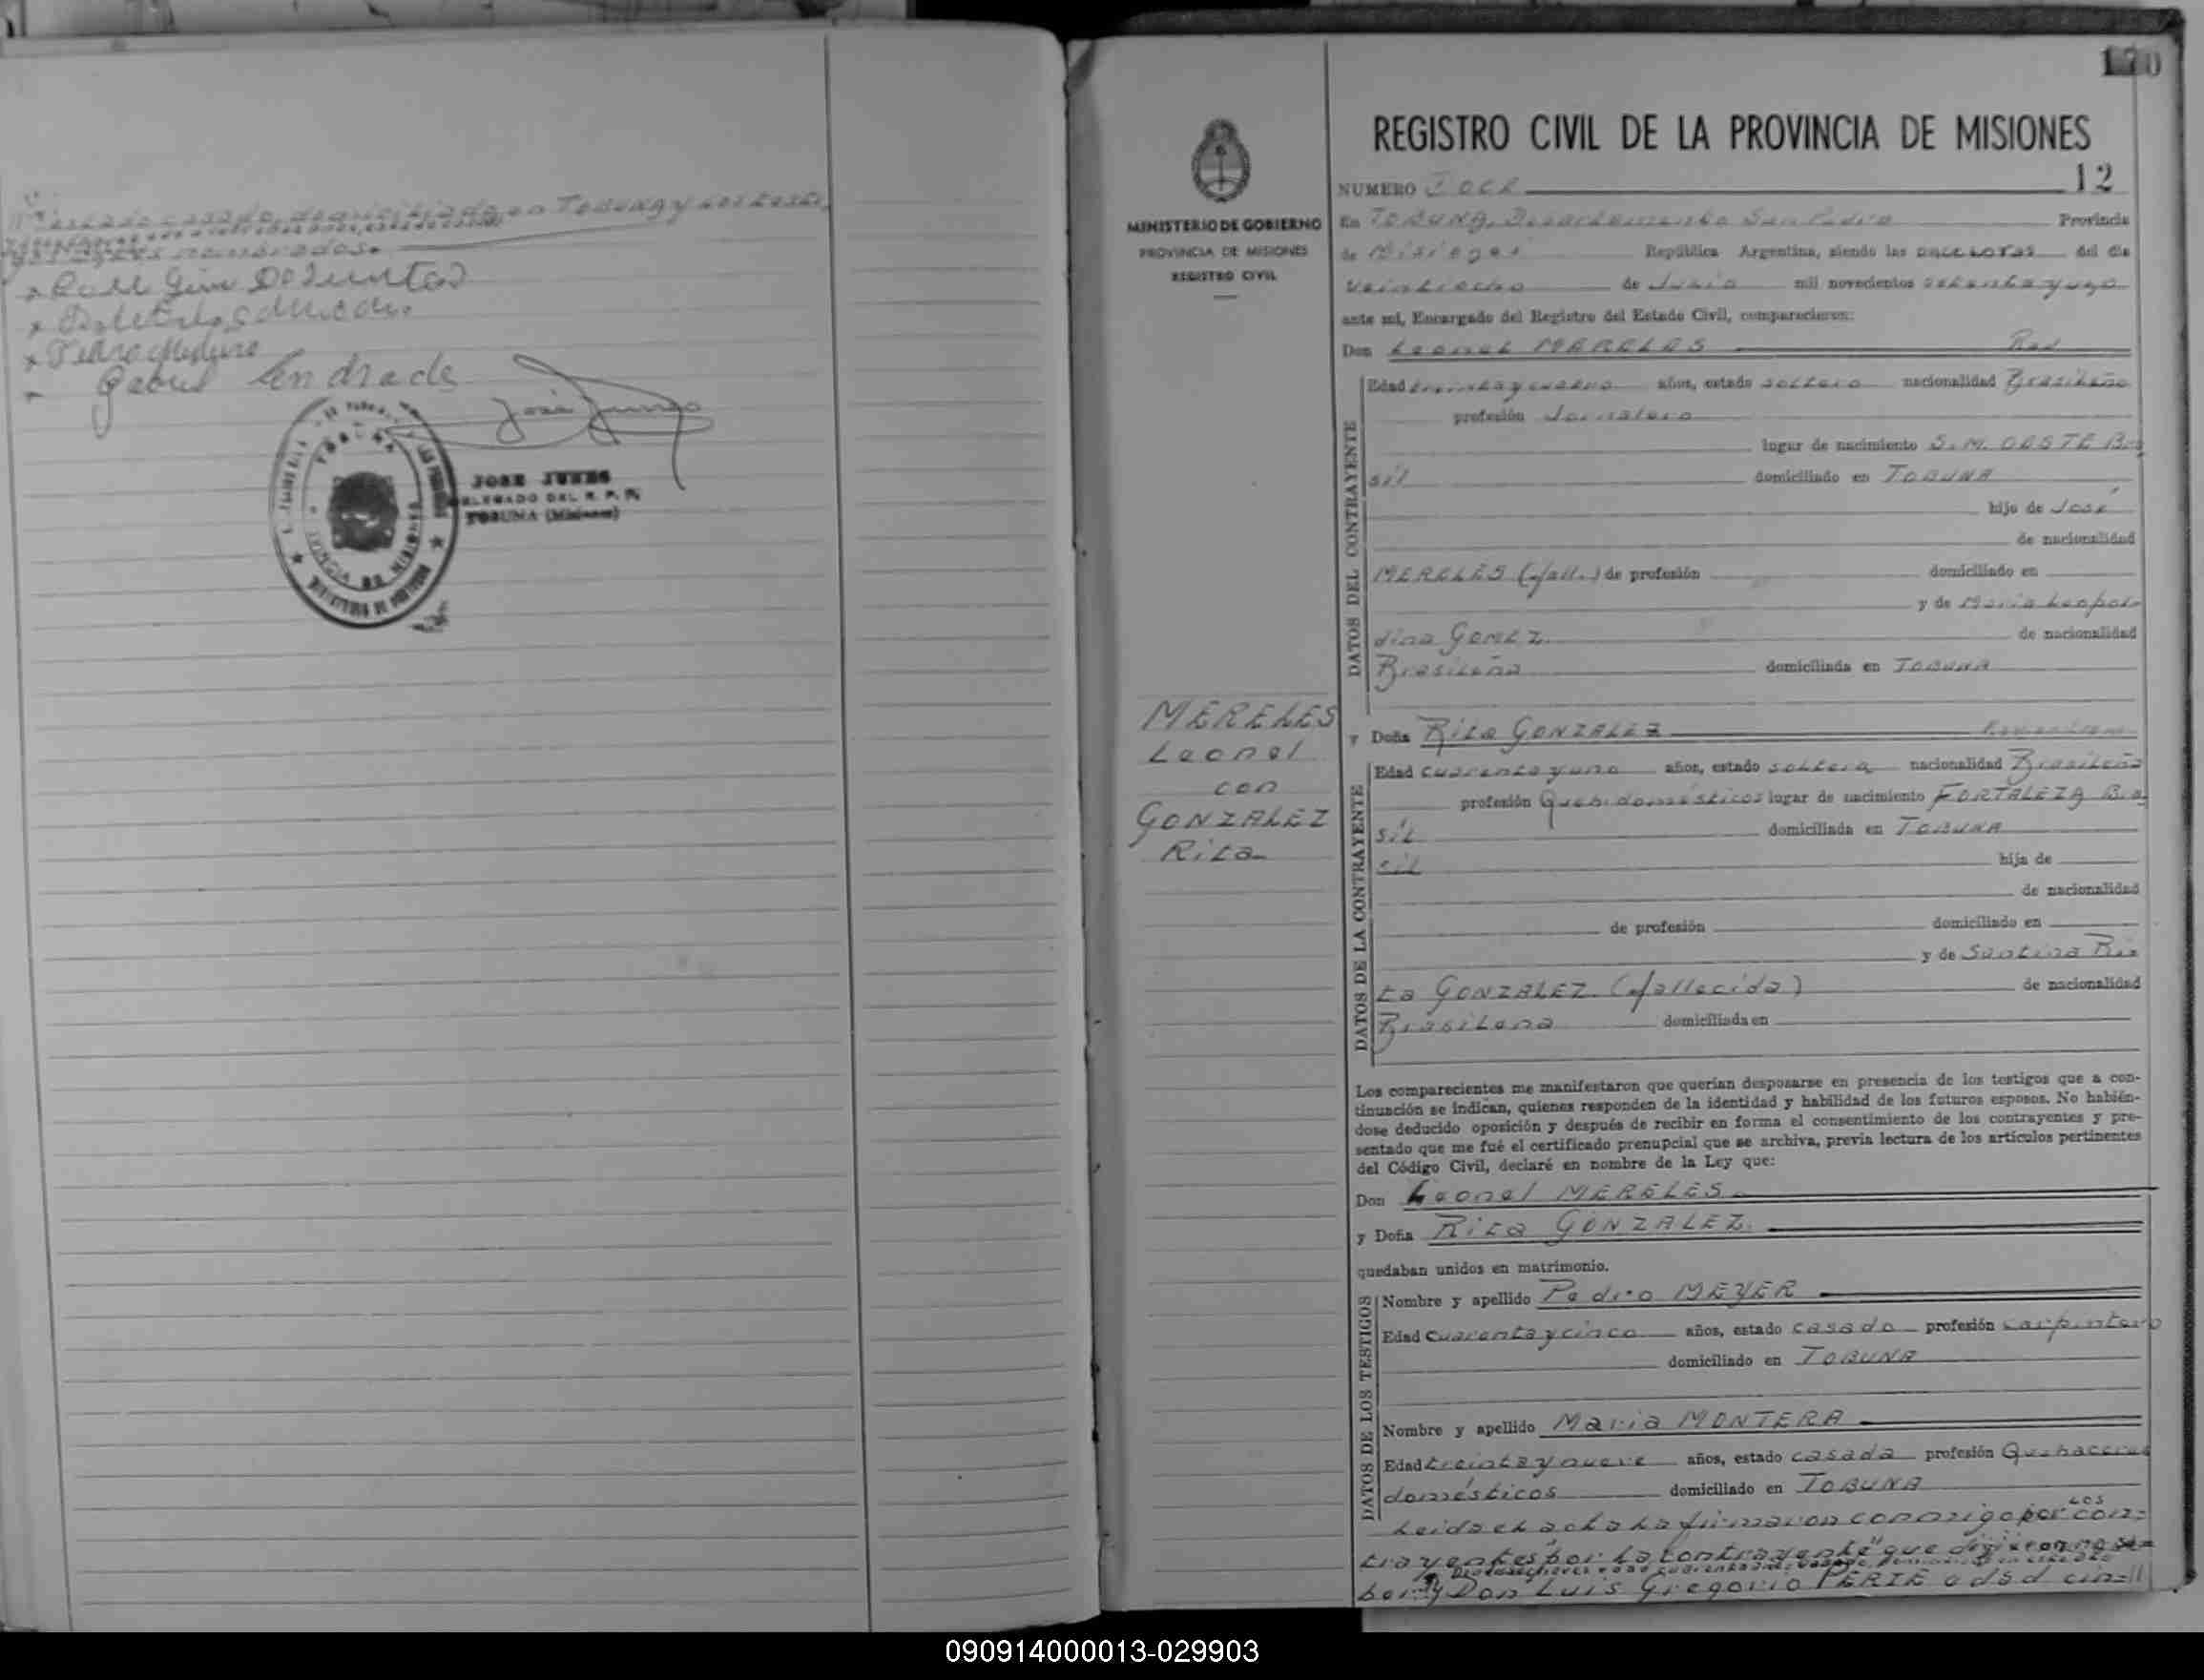 estado casado, domiciliado en TOBUNA y los testi
nombrados.
Gabriel Andrade
José Junes
JOSE JUNES
DELEGADO DEL R. P. P.
TOBUNA (Misiones)
170
REGISTRO CIVIL DE LA PROVINCIA DE MISIONES
MINISTERIO DE GOBIERNO
PROVINCIA DE MISIONES
REGISTRO CIVIL
MERELES
Leonel
con
GONZALEZ
Rita
NUMERO Doce 12
En TOBUNA, Departamento San Pedro Provincia
de Misiones República Argentina, siendo las once horas del día
veintiocho de Junio mil novecientos setenta y uno
ante mí, Encargado del Registro del Estado Civil, comparecieron:
Don Leonel MERELES
DATOS DEL CONTRAYENTE
Edad treinta y cuatro años, estado soltero nacionalidad Brasileño
profesión Jornalero
lugar de nacimiento S. M. OESTE Bra
sil domiciliado en TOBUNA
hijo de José
de nacionalidad
MERELES (fall.) de profesión domiciliado en
y de María Leopol
dina GOMEZ de nacionalidad
Brasileña domiciliada en TOBUNA
y Doña Rita GONZALEZ
DATOS DE LA CONTRAYENTE
Edad cuarenta y uno años, estado soltera nacionalidad Brasileña
profesión Queh. domésticos lugar de nacimiento FORTALEZA Bra
sil domiciliada en TOBUNA
sil hija de
de nacionalidad
de profesión domiciliado en
y de Santina Ri
ta GONZALEZ (fallecida) de nacionalidad
Brasilena domiciliada en
Los comparecientes me manifestaron que querían desposarse en presencia de los testigos que a con-
tinuación se indican, quienes responden de la identidad y habilidad de los futuros esposos. No habién-
dose deducido oposición y después de recibir en forma el consentimiento de los contrayentes y pre-
sentado que me fué el certificado prenupcial que se archiva, previa lectura de los artículos pertinentes
del Código Civil, declaré en nombre de la Ley que:
Don Leonel MERELES
y Doña Rita GONZALEZ
quedaban unidos en matrimonio.
DATOS DE LOS TESTIGOS
Nombre y apellido Pedro MEYER
Edad cuarenta y cinco años, estado casado profesión carpintero
domiciliado en TOBUNA
Nombre y apellido María MONTERA
Edad treinta y nueve años, estado casada profesión Quehaceres
domésticos domiciliado en TOBUNA
Leida el acta la firmaron conmigo por los con=
trayentes "por la contrayente" que dijeron no sa=
ber, y Don Luis Gregorio PERIE edad cin=
090914000013-029903